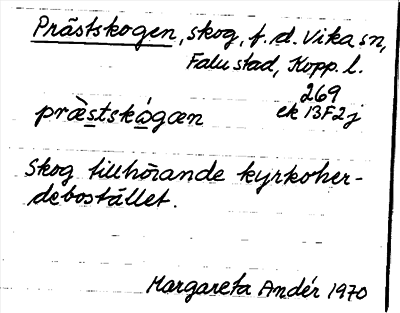 Prästskogen, skog, f.d. Vika sn,
Falu stad, Kopp. l.
269
ek 13F2j
præ̀stskó̱gæn
Skog tillhörande kyrkoher-
debostället.
Margareta Andér 1970